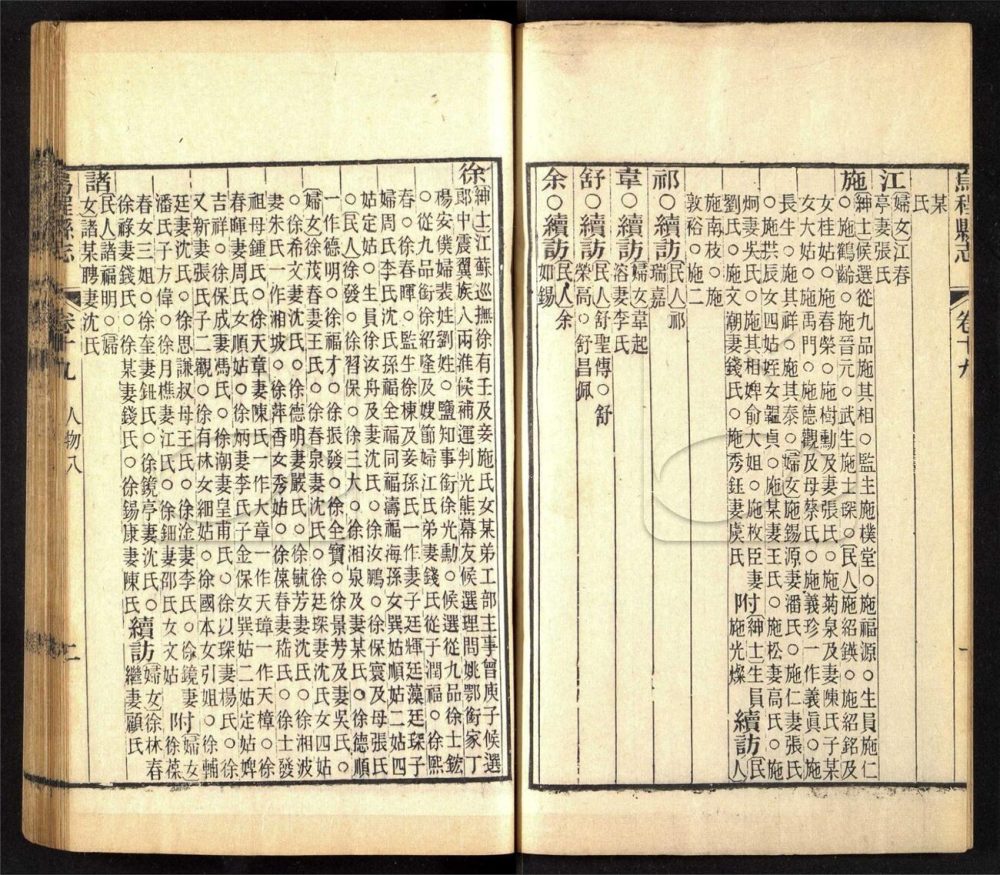 烏程縣志 卷十九 一
某
氏
江婦女江春
亭妻張氏
施紳士候選從九品施其相○監生施樸堂○施福源○生員施仁
○施鶴齡○施晉元○武生施士琛○民人施紹鍈○施紹銘及
女桂姑○施春榮○施樹勳及妻張氏○施菊泉及妻陳氏子某
女大姑○施禹門○施德觀及母蔡氏○施義珍一作義眞○施
長生○施其祥○施其泰○婦女施錫源妻潘氏○施仁妻張氏
○施拱辰女四姑姪女韞貞○施某妻王氏○施松妻高氏○施
炯妻吳氏○施其相婢俞大姐○施枚臣妻
劉氏○施文潮妻錢氏○施秀鈺妻虞氏
附紳士生員
施光燦
續訪民人
施南枝○施
敦裕○施二
祁○續訪民人祁
瑞嘉
韋○續訪婦女韋起
溶妻李氏
舒○續訪民人舒聖傳○舒
榮高○舒昌佩
余○續訪民人余
如錫
徐紳士江蘇巡撫徐有壬及妾施氏女某弟工部主事曾庚子候選
郎中震翼族人兩淮候補運判光熊幕友候選理問姚鄂銜家丁
楊安僕婦裴姓劉姓○鹽知事銜徐光勳○候選從九品徐士鋐
○從九品銜徐紹隆及嫂節婦江氏弟妻錢氏從子潤福○徐熙
春○徐春暉○監生徐棟及妾孫氏一作妻子廷輝廷藻廷琛子
婦周氏李氏沈氏孫福全福同福濤福海孫女巽姑順姑二姑四
姑定姑○生員徐汝舟及妻沈氏○徐汝鵬○徐保寰及母張氏
○民人徐發○徐習保○徐三大○徐湘泉及妻某氏○徐德順
一作德明○徐福才○徐振發○徐全寶○徐景芳及妻吳氏○
婦女徐茂春妻王氏○徐春泉妻沈氏○徐廷琛妻沈氏女四姑
○徐希文妻沈氏○徐德明妻嚴氏○徐毓芳妻沈氏○徐湘波
妻朱氏一作湘坡○徐萍香女秀姑○徐葆春妻嵇氏○徐士發
祖母鍾氏○徐天章妻陳氏一作大章一作天璋一作天樟○徐
春暉妻周氏女順姑○徐炳妻李氏子金保女巽姑二姑定姑婢
吉祥○徐保成妻馮氏○徐潮妻皇甫氏○徐以琛妻楊氏○徐
又新妻張氏子二觀○徐有林女細姑○徐國本女引姐○徐輔
廷妻沈氏○徐思謙叔母王氏○徐淦妻李氏○徐鏡妻
潘氏子方偉○徐月樵妻江氏○徐鈿妻邵氏女文姑
附婦女
徐葆
春女三姐○徐奎妻鈕氏○徐鏡亭妻沈氏○
徐祿妻錢氏○徐某妻錢氏○徐錫康妻陳氏○
續訪婦女徐林春
繼妻顧氏
諸民人諸福明○婦
女諸某聘妻沈氏
烏程縣志 卷十九 人物八 二